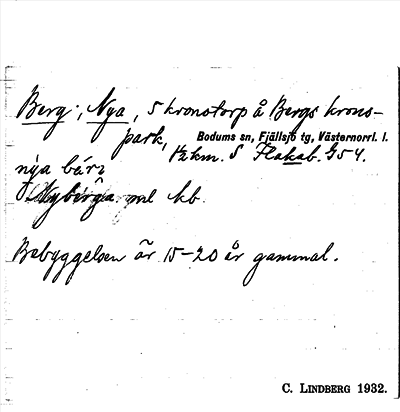 Berg, Nya, 5 kronotorp å Bergs krono-
park, Bodums sn, Fjällsjö tg, Västernorrl. l.
½ km. S Flakab. G54.
nỳa bär̀
Nyberga enl kb.
Bebyggelsen är 15-20 år gammal.
C. LINDBERG 1932.